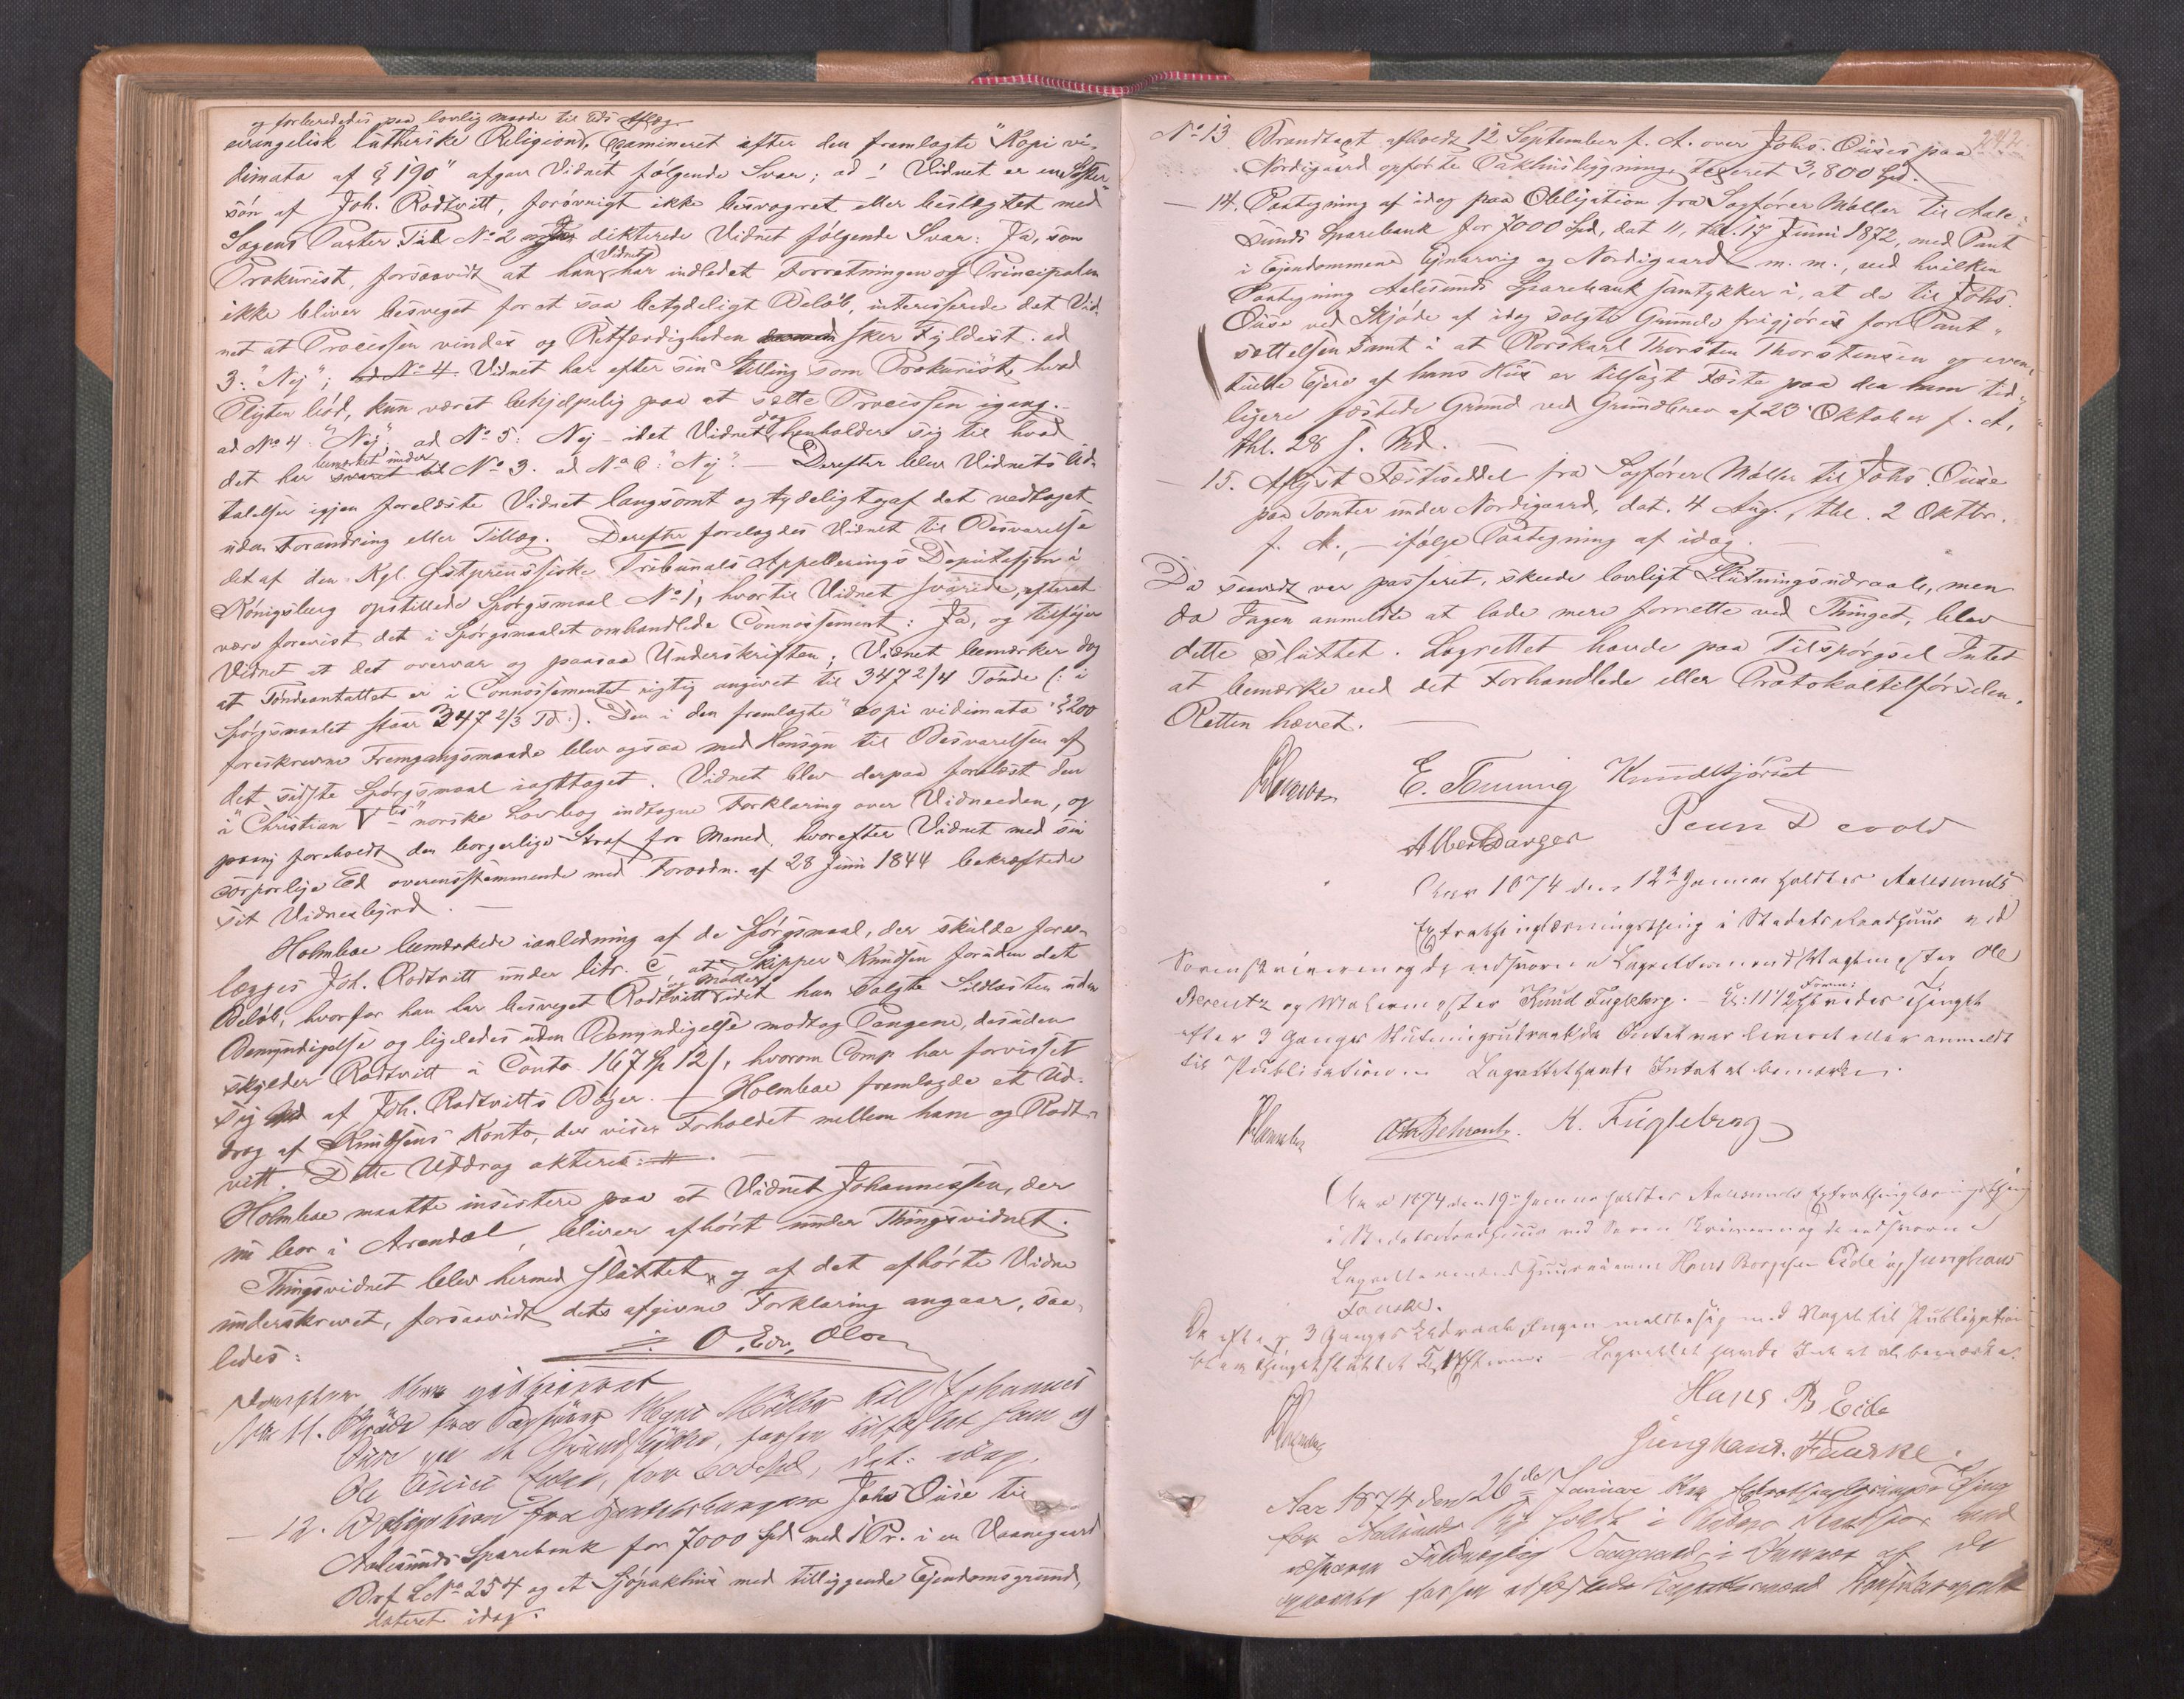 og forberededes paa lovlig maade til Eds Aflæg
evangelisk lutherske Religion, Examineret efter den fremlagte "Kopi vi-
dimata af § 190" afgav Vidnet følgende Svar; ad 1 Vidnet er en Søster
søn af Joh. Rødtvitt, forøvrigt ikke besvogret eller beslægtet med
Sagens Parter Til No 2 dikterede Vidnet følgende Svar: Ja, som
Prokurist, forsaavidt at han, Vidnet, har indledet Forretningen og Principalen
ikke bliver besveget for et saa betydeligt Beløb, interesserede det Vid-
net at Processen vindes og Retfærdigheden sker Fyldest. ad
3: "Nej"; ad No 4. Vidnet har efter sin Stilling som Prokurist, hvad
Pligten bød, kun været behjelpelig paa at sætte Processen igang. -
ad No 4. "Nej", ad No 5: Nej - idet Vidnet dog henholder sig til hvad
det har bemærket under svaret til No 3. ad No 6: "Nej". - Derefter blev Vidnets Ud-
talelser igjen forelæste Vidnet langsomt og tydeligt og af det vedtaget
uden Forandring eller Tillæg. Derefter forelagdes Vidnet til Besvarelse
det af den Kgl. Østpreussiske Tribunals Appellerings Deputasjon i
Königsberg opstillede Spørgsmaal No 1, hvortil Vidnet svarede, efterat
være forevist det i Spørgsmaalet omhandlede Connossement: Ja, og tilføjer
Vidnet at det overvar og paasaa Underskriften; Vidnet bemærker dog
at Tøndeantallet er i Connossementet rigtig angivet til 347 2/4 Tønde (: i
Spørgsmaalet staar 347 2/3 Td :). Den i den fremlagte "copi vidimata" § 200
foreskrevne Fremgangsmaade blev ogsaa med Hensyn til Besvarelsen af
det sidste Spørgsmaal iagttaget. Vidnet blev derpaa forelæst den
i "Christian Vtes" norske Lovbog indtagne Forklaring over Vidneeden, og
paany foreholdt den borgerlige Straf for Mened, hvorefter Vidnet med sin
corporlige Ed overensstemmende med Forordn. af 28 Juni 1844 bekræftede
sit Vidnesbyrd. -
Holmboe bemærkede ianledning af de Spørgsmaal, der skulde fore-
lægges Joh. Rødtvitt under litr. C, at Skipper Knudsen foruden det
Beløb, hvorfor han har besveget Rødtvitt og Møller idet han solgte Sildlasten uden
Bemyndigelse og ligeledes uden Bemyndigelse modtog Pengene, desuden
skylder Rødtvitt à Conto 167 Sp 12 s, hvorom Comp. har forvisset
sig ved af Joh. Rødtvitts Bøger. - Holmboe fremlagde et Ud-
drag af Knudsens Konto, der viser Forholdet mellem ham og Rødt-
vitt. Dette Uddrag akteres. -
Holmboe maatte insistere paa at Vidnet Johannessen, der
nu bor i Arendal, bliver afhørt under Thingsvidnet.
Thingsvidnet blev hermed sluttet, og af det afhørte Vidne
underskrevet, forsaavidt dets afgivne Forklaring angaar, saa-
ledes:
O. Edv. Olsen
Derefter blev publiceret
No 11. Skjøde fra Sagfører Møller til Johannes
Ouse paa et Grundstykke, forhen tilfæstet ham og
Ole Ouse, for 600 Spd, dat: idag.
- 12. Obligation fra Handelsborger Johs Ouse til
Aalesunds Sparebank for 7000 Spd med 1 Pr. i en Vaanegaard
Brf LNo 254 og et Sjøpakhus med tilliggende Ejendomsgrund,
dateret idag.
242
No 13 Brandtaxt afholdt 12 September f. A. over Johs. Ouses paa
Nordigaard opførte Pakhusbygning taxeret 3,800 Spd. -
- 14. Paategning af idag paa Obligation fra Sagfører Møller til Aale-
sunds Sparebank for 7000 Spd, dat 11, thl. 17 Juni 1872, med Pant
i Ejendommene Ejnarvig og Nordigaard m. m., ved hvilken
Paategning Aalesunds Sparebank samtykker i, at de til Johs.
Ouse ved Skjøde af idag solgte Grunde frigjøres for Pant-
sættelsen samt i at Rorskarl Thorsten Thorstensen og even-
tuelle Ejere af hans Hus er tilsagt Fæste paa den ham tid-
ligere fæstede Grund ved Grundbrev af 23 Oktober f. A.,
thl. 28 s. Md. -
- 15. Aflyst Fæsteseddel fra Sagfører Møller til Johs. Ouse
paa Tomter under Nordigaard, dat. 4 Aug., thl. 2 Oktbr.
f. A., - ifølge Paategning af idag. -
Da saavidt var passeret, skeede lovligt Slutningsudraab, men
da Ingen anmeldte at lade mere forrette ved Thinget, blev
dette sluttet. Lagrettet havde paa Tilspørgsel Intet
at bemærke ved det Forhandlede eller Protokoltilførselen.
Retten hævet. -
E. Tenning Knud Hjørset
Albert Barger Peun Devold
Aar 1874 den 12te Januar holdtes Aalesunds
Extrathinglæsningsthing i Stadets Raadhuus ved
Sorenskriveren og de edsvorne Lagrettemænd Vagtmester Ole
Berentz og Malermester Knud Fugleberg. - Kl: 11 1/2 Form: hævedes Thinget
efter 3 Ganges Slutningsudraab, da Intet var leveret eller anmeldt
til Publikation. Lagrettet havde Intet at bemærke.
Behrentz. K. Fugleberg
Aar 1874 den 19de Januar holdtes Aalesunds Extrathinglæsningsthing
i Stadets Raadhuus ved Sorenskriveren og de edsvorne
Lagrettemænd Huuseierne Hans Eide og Junghans
Fauske.
Da efter 3 Ganges Udraab, Ingen meldte sig med Noget til Publikation
blev Thinget sluttet - Lagrettet havde Intet at bemærke.
Hans B Eide
Junghans. Fauske.
Aar 1874 den 26de Januar blev Extrathinglæsnings Thing
for Aalesunds By holdt i Byens Raadhus ved
Vaagaard, i Overvær af de